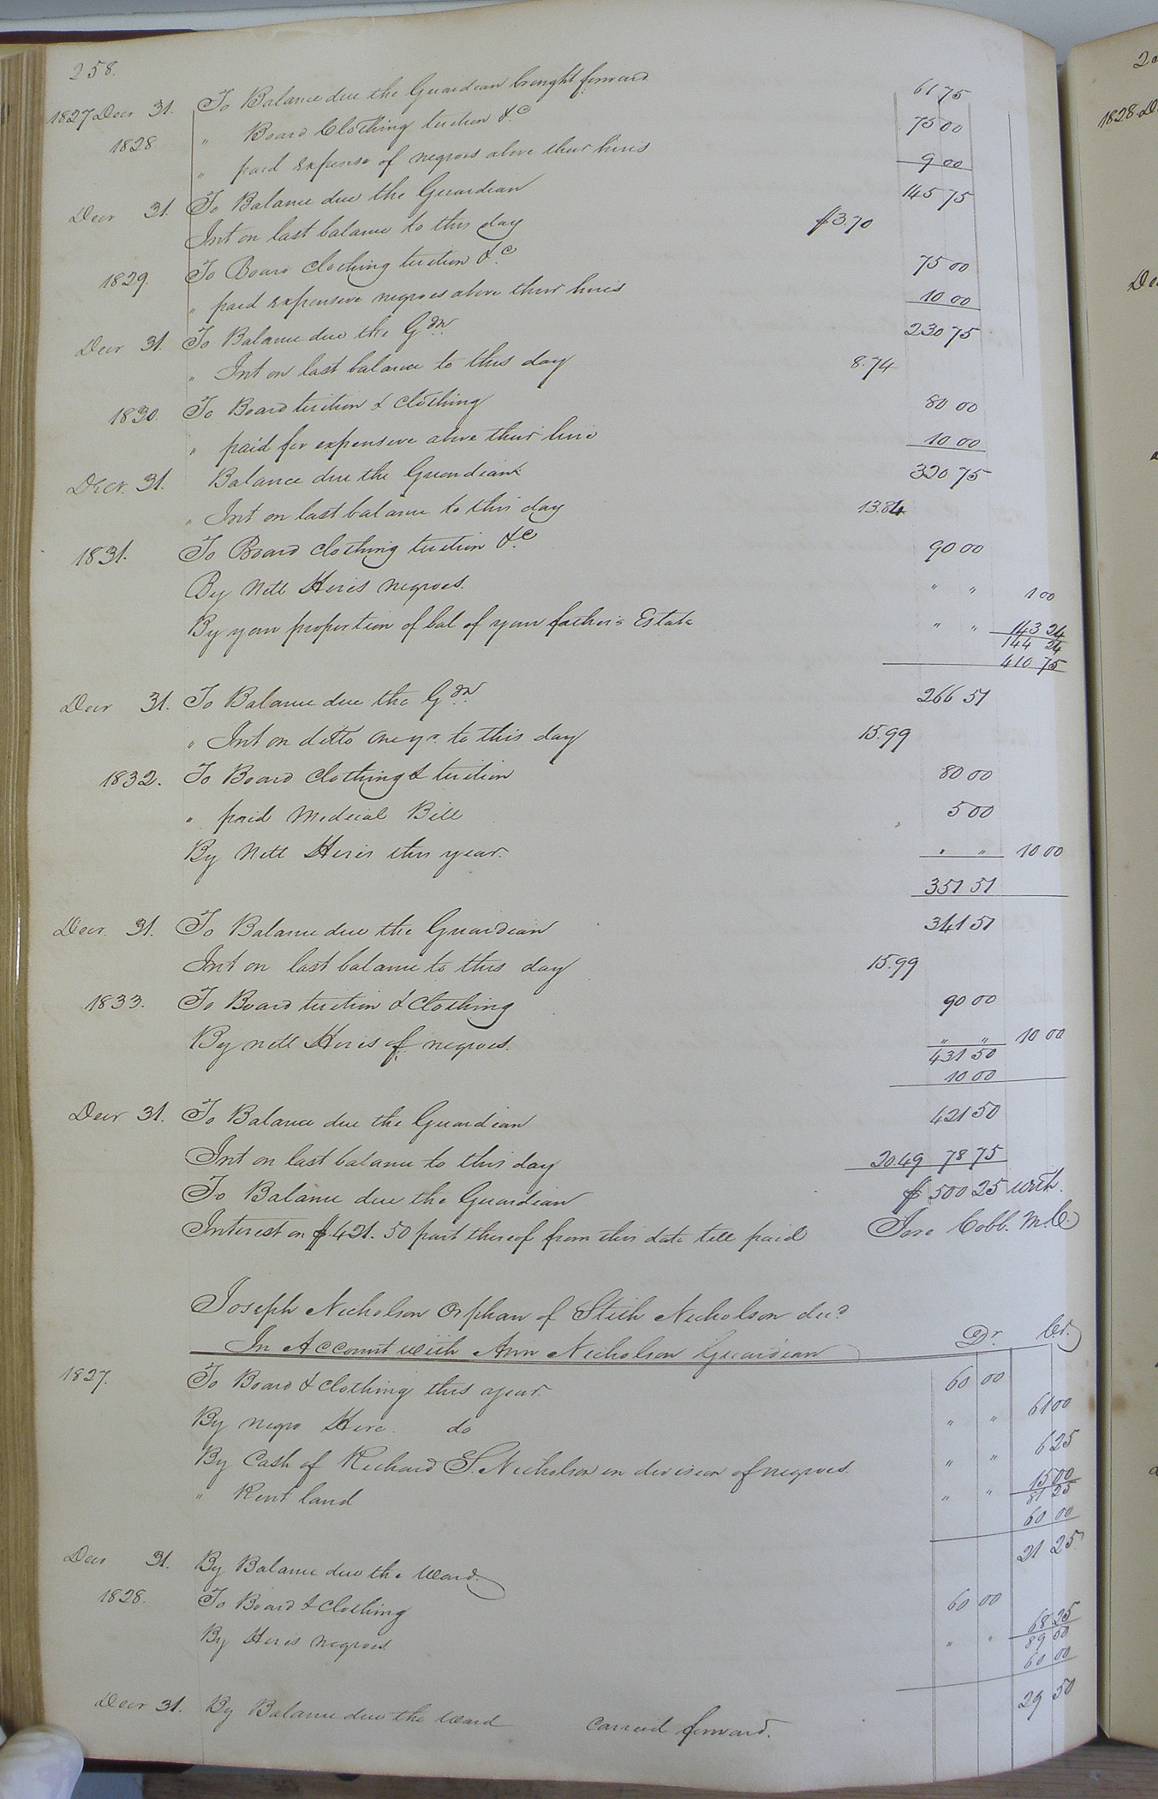 258.
1827 Decr 31. To Balance due the Guardian brought forward 61 75
1828 " Board Clothing tuition &c 75 00
" paid expense of negroes above their hires 9 00
Decr 31. To Balance due the Guardian 145 75
Int on last balance to this day $3.70
1829. To Board Clothing tuition &c 75 00
" paid expensive negroes above their hires 10 00
Decr 31. To Balance due the Gdn 230 75
" Int on last balance to this day 8.74
1830. To Board tuition & Clothing 80 00
" paid for expensive above their hire 10 00
Decr. 31. Balance due the Guardian 320 75
" Int on last balance to this day 13.84
1831. To Board Clothing tuition &c 90 00
By Nett Hires negroes. " " 1 00
By your proportion of bal of your father's Estate " " 143 24
144 24
410 75
Decr 31. To Balance due the Gdn 266 51
" Int on ditto one yr. to this day 15.99
1832. To Board Clothing & tuition 80 00
" paid Medical Bill 5 00
By Nett Hires this year. " " 10 00
351 51
Decr. 31. To Balance due the Guardian 341 51
Int on last balance to this day 15.99
1833. To Board tuition & Clothing 90 00
By nett Hires of negroes. " " 10 00
431 50
10 00
Decr 31. To Balance due the Guardian 421 50
Int on last balance to this day 20.49 78 75
To Balance due the Guardian $500 25 with
Interest on $421.50 part thereof from this date till paid Jere Cobb. M.C.
Joseph Nicholson Orphan of Stith Nicholson decd
In Account with Ann Nicholson Guardian Dr. Cr.
1827. To Board & Clothing this year 60 00
By negro Hire do " " 61 00
By Cash of Richard S. Nicholson in division of negroes. " " 6 25
" Rent land " " 15 00
81 25
60 00
Decr 31. By Balance due the Ward 21 25
1828. To Board & Clothing 60 00
By Hires negroes " " 68 25
89 00
60 00
Decr 31. By Balance due the Ward carried forward. 29 50
1828 D